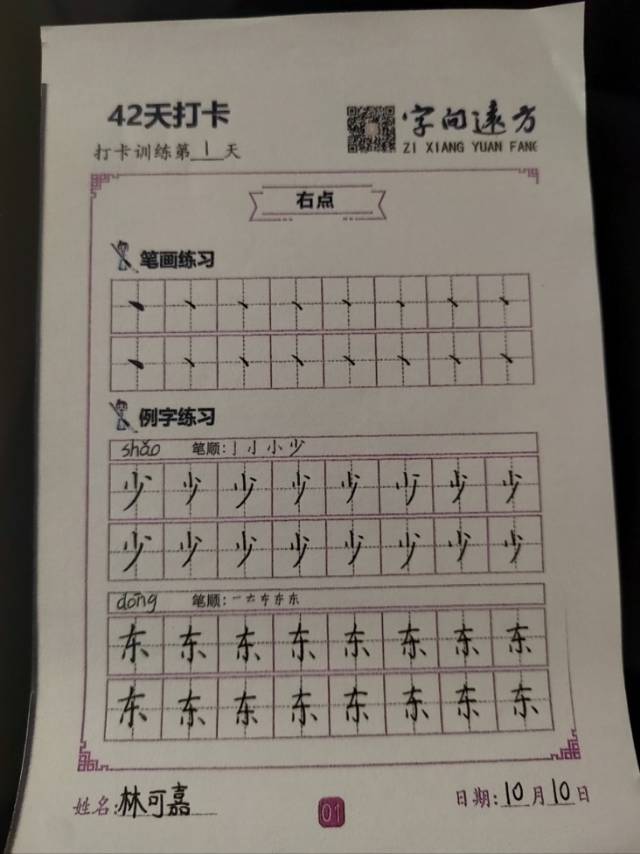 42天打卡
字向远方
打卡训练第1天
ZI XIANG YUAN FANG
右点
笔画练习
例字练习
shǎo 笔顺:亅 小 小 少
少 少 少 少 少 少 少 少
少 少 少 少 少 少 少 少
dōng 笔顺:一 𠂇 车 东 东
东 东 东 东 东 东 东 东
东 东 东 东 东 东 东 东
姓名:林可嘉
01
日期:10月10日